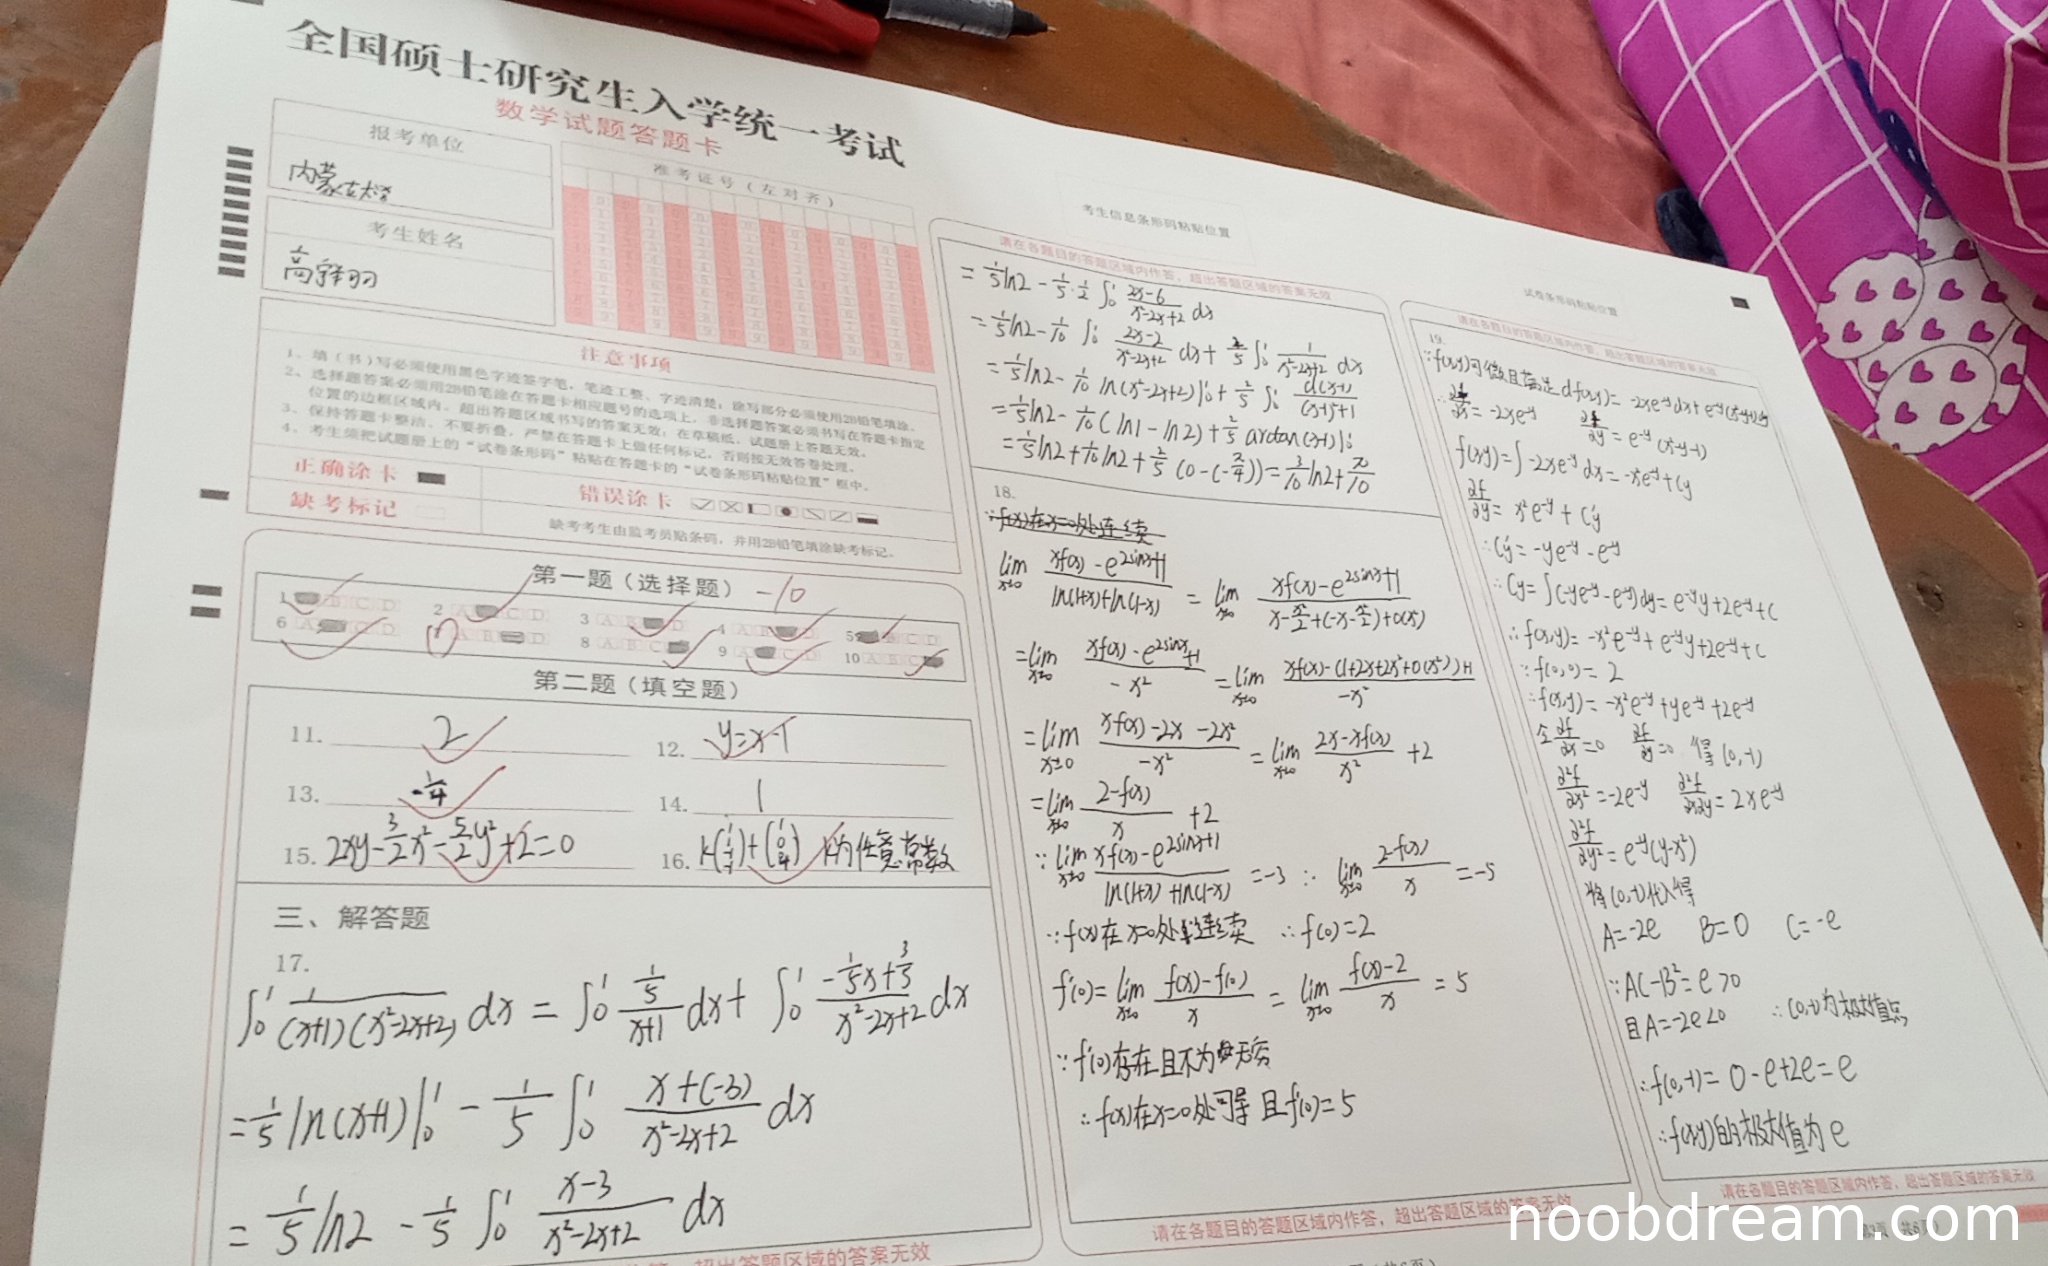 全国硕士研究生入学统一考试
数学试题答题卡
报考单位
内蒙古大学
考生姓名
准考证号(左对齐)
注意事项
1、填(书)写必须使用黑色字迹签字笔,笔迹工整、字迹清楚;涂写部分必须使用2B铅笔填涂。
2、选择题答案必须用2B铅笔涂在答题卡相应题号的选项上,非选择题答案必须书写在答题卡指定
位置的边框区域内。超出答题区域书写的答案无效;在草稿纸、试题册上答题无效。
3、保持答题卡整洁、不要折叠,严禁在答题卡上做任何标记,否则按无效答卷处理。
4、考生须把试题册上的“试卷条形码”粘贴在答题卡的“试卷条形码粘贴位置”框中。
正确涂卡
错误涂卡
缺考标记
缺考考生由监考员贴条码,并用2B铅笔填涂缺考标记。
第一题(选择题) -10
第二题(填空题)
11. 2
12. y=x-1
13. -1/4
14. 1
15. 2xy-3/2x²-5/2y²+2=0
16. k为任意常数
三、解答题
17.
∫₀¹ 1/((x+1)(x²-2x+2)) dx = ∫₀¹ (1/5)/(x+1) dx + ∫₀¹ (-1/5x+3/5)/(x²-2x+2) dx
= 1/5 ln(x+1)|₀¹ - 1/5 ∫₀¹ (x+(-3))/(x²-2x+2) dx
= 1/5 ln2 - 1/5 ∫₀¹ (x-3)/(x²-2x+2) dx
考生信息条形码粘贴位置
请在各题目的答题区域内作答,超出答题区域的答案无效
= 1/5 ln2 - 1/5·1/2 ∫₀¹ (2x-6)/(x²-2x+2) dx
= 1/5 ln2 - 1/10 ∫₀¹ (2x-2)/(x²-2x+2) dx + 2/5 ∫₀¹ 1/(x²-2x+2) dx
= 1/5 ln2 - 1/10 ln(x²-2x+2)|₀¹ + 2/5 ∫₀¹ d(x-1)/((x-1)²+1)
= 1/5 ln2 - 1/10 (ln1-ln2) + 2/5 arctan(x-1)|₀¹
= 1/5 ln2 + 1/10 ln2 + 2/5 (0-(-π/4)) = 3/10 ln2 + π/10
18.
∵f(x)在x=0处连续
lim x→0 (xf(x)-e^(2sinx)+1)/(ln(1+x)+ln(1-x)) = lim x→0 (xf(x)-e^(2sinx)+1)/(x-x²/2+(-x-x²/2)+o(x²))
= lim x→0 (xf(x)-e^(2sinx)+1)/(-x²) = lim x→0 (xf(x)-(1+2x+2x²+o(x²))+1)/(-x²)
= lim x→0 (xf(x)-2x-2x²)/(-x²) = lim x→0 (2x-xf(x))/x² +2
= lim x→0 (2-f(x))/x +2
∵ lim x→0 (xf(x)-e^(2sinx)+1)/(ln(1+x)+ln(1-x)) = -3 ∴ lim x→0 (2-f(x))/x = -5
∵f(x)在x=0处连续 ∴f(0)=2
f'(0)= lim x→0 (f(x)-f(0))/x = lim x→0 (f(x)-2)/x = 5
∵f'(0)存在且不为无穷
∴f(x)在x=0处可导 且f'(0)=5
请在各题目的答题区域内作答,超出答题区域的答案无效
试卷条形码粘贴位置
请在各题目的答题区域内作答,超出答题区域的答案无效
19.
∵f(x,y)可微且满足df(x,y)=-2xe^(-y)dx+e^(-y)(x²-y-1)dy
∴∂f/∂x=-2xe^(-y) ∂f/∂y=e^(-y)(x²-y-1)
f(x,y)=∫-2xe^(-y)dx=-x²e^(-y)+Cy
∂f/∂y=x²e^(-y)+C'y
∴C'y=-ye^(-y)-e^(-y)
∴Cy=∫(-ye^(-y)-e^(-y))dy=e^(-y)y+2e^(-y)+C
∴f(x,y)=-x²e^(-y)+e^(-y)y+2e^(-y)+C
∵f(0,0)=2
∴f(x,y)=-x²e^(-y)+ye^(-y)+2e^(-y)
令∂f/∂x=0 ∂f/∂y=0 得(0,-1)
∂²f/∂x²=-2e^(-y) ∂²f/∂x∂y=2xe^(-y)
∂²f/∂y²=e^(-y)(y-x²)
将(0,-1)代入得
A=-2e B=0 C=-e
∵AC-B²=e>0
且A=-2e<0 ∴(0,-1)为极大值点
∴f(0,-1)=0-e+2e=e
∴f(x,y)的极大值为e
请在各题目的答题区域内作答,超出答题区域的答案无效
noobdream.com